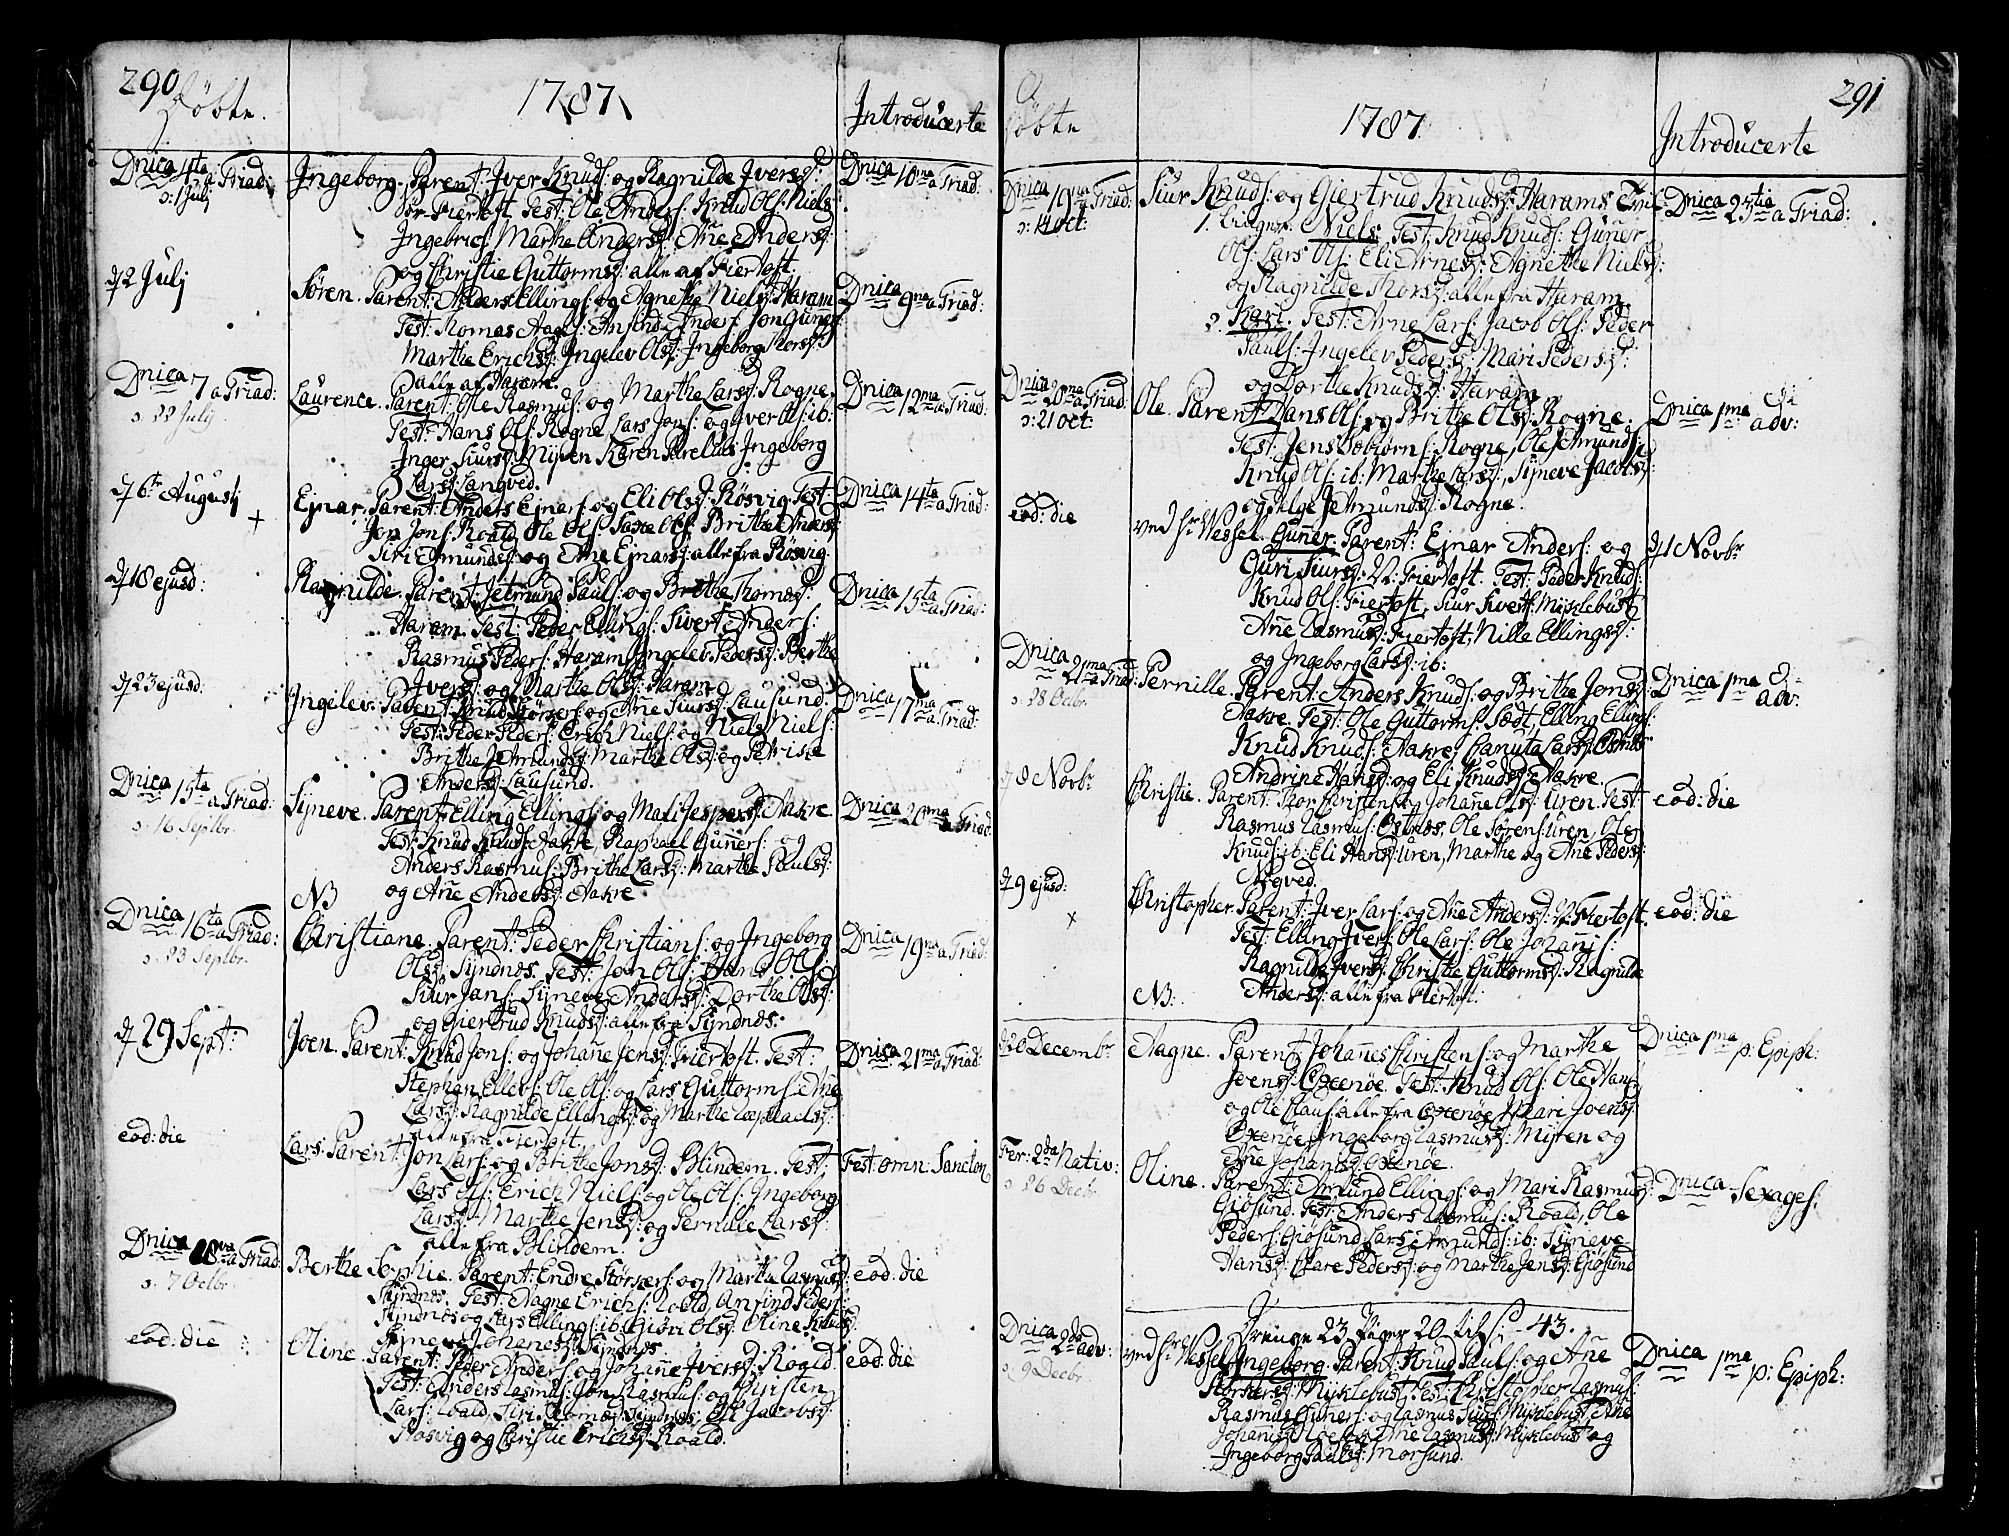 290 Döbte.
1787
Introducerte
Dnica 4ta a Triad:
ɔ: 1 Julj
Ingeborg. Parent: Iver Knuds: og Ragnilde Ivers:
Sör-Fiertoft. Test: Ole Anders: Knud Ols: Niels
Ingebrics: Marthe Anders: Añe Anders:
og Christie Guttorms: alle af Fiertoft.
Dnica 10ma a Triad:
d 2 Julj
Sören. Parent: Anders Ellings: og Agnethe Niels: Haram
Test: Thomas Aages: Ansind Anders: Jon Guners:
Marthe Erichs: Ingelev Ols: Ingeborg Thors:
alle af Haram.
Dnica 9na a Triad:
Dnica 7 a Triad:
ɔ: 22 Julj
Laurence. Parent: Ole Rasmus: og Marthe Lars: Rogne.
Test: Hans Ols: Rogne, Lars Jons: og Iver Ols: ib:
Inger Siurs: Myren Karen Ingeborg
Lars: Langved.
Dnica 12ma a Triad:
d 6te Augusti
Ejnar. Parent: Anders Ejnars: og Eli Ols: Rösvig. Test:
Jon Jons: Roald, Ole Ols: Saxe Ols: Brithe Anders:
Siri Amunds: og Añe Ejnars: alle fra Rösvig.
Dnica 14ta a Triad:
d 18 ejusd:
Ragnilde. Parent: Jetmund Pauls: og Brithe Thomæs:
Haram. Test: Peder Ellings: Sivert Anders:
Rasmus Peders: Haram, Ingelev Peders: Berthe
Ivers: og Marthe Ols: Haram.
Dnica 15ta a Triad:
d 23 ejusd:
Ingelev. Parent: Knud Störkers: og Añe Siurs: Lausund.
Test: Peder Peders: Erich Niels: og Niels Niels:
Brithe Jetmunds: Marthe Ols: og
Anders: Lausund.
Dnica 17ma a Triad:
Dnica 15ta a Triad:
ɔ: 16 Septbr.
Sijneve. Parent: Elling Ellings: og Mali Jespers: Aakre
Test: Knud Knuds: Aakre, Raphael Guners: og
Anders Rasmus: Brithe Lars: Marthe Pauls:
og Añe Anders: Aakre
Dnica 20ma a Triad:
NB
Dnica 16ta a Triad:
ɔ: 23 Septbr.
Christiane. Parent: Peder Christians: og Ingeborg
Ols: Sijndnes. Test: Jon Ols: Hans Ols:
Siur Jans: Sijneve Anders: Dorthe Ols:
og Giertrud Knuds: alle fra Sijndnes.
Dnica 19na a Triad:
d 29 Sept:
Joen. Parent: Knud Jons: og Johañe Jens: Fiertoft. Test:
Stephen Ellefs: Ole Ols: og Lars Guttorms: Añe
Lars: Ragnilde Ellings: og Marthe Raphaels:
alle fra Fiertoft.
Dnica 21ma a Triad:
eod: die
Lars. Parent: Jon Lars: og Brithe Jons: Blindem. Test:
Lars Ols: Erich Niels: og Ole Ols: Ingeborg
Lars: Marthe Jens: og Pernille Lars:
alle fra Blindem.
Fest: omn: Sanctor
Dnica 18va a Triad:
ɔ: 7 Octbr.
Berthe Sophie. Parent: Endre Störkers: og Marthe Rasmus:
Sijndnes. Test: Aagne Erichs: Roald, Ansind Peders:
Sijndnes og Lars Ellings: ib: Giöri Ols: Oline Knuds:
Sijneve Johañes: Sijndnes
eod: die
eod: die
Oline. Parent: Peder Anders: og Johañe Ivers: Roald.
Test: Anders Rasmus: Jon Rasmus: og Christen
Lars: Roald, Siri Thomæs: Sijndnes: Eli Jacobs:
Rösvig og Christie Erichs: Roald.
eod: die
291
Döbte
1787
Introducerte
Dnica 19na a Triad:
ɔ: 14 Oct:
Siur Knuds: og Giertrud Knuds: Harams
1. Niels. Test: Knud Knuds: Guner
Ols: Lars Ols: Eli Arnes: Agnethe Niels:
og Ragnilde Thors: alle fra Haram.
2. Kari. Test: Arne Lars: Jacob Ols: Peder
Pauls: Ingelev Peders: Mari Peders:
og Dorthe Knuds: Haram
Dnica 25tia a Triad:
Dnica 20ma a Triad:
ɔ: 21 Oct:
Ole. Parent: Hans Ols: og Brithe Ols: Rogne.
Test: Jens Rogne, Ole Amunds:
Knud Ols: ib: Marthe Lars: Sijneve Jacobs:
og Helge Jetmunds: Rogne.
Dnica 1ma adv:
eod: die
ved Hr Wessel. Guner. Parent: Ejnar Anders: og
Guri Siurs: N: Fiertoft. Test: Peder Knuds:
Knud Ols: Fiertoft, Siur Siverts: Myklebust,
Añe Rasmus: Fiertoft, Nille Ellings:
og Ingeborg Lars: ib:
d 1 Novbr
Dnica 21ma a Triad:
ɔ: 28 Octbr.
Pernille. Parent: Anders Knuds: og Brithe Jons:
Aakre. Test: Ole Guttorms: Sædt, Elling Ellings:
Knud Knuds: Aakre, Canuta Lars: Östnes
Andrine Hans: og Eli Knuds: Aakre.
Dnica 1ma adv:
d 8 Novbr
Christie. Parent: Thor Christens: og Johañe Ols: Uren. Test:
Rasmus Rasmus: Östnes, Ole Sörens: Uren, Ole
Knuds: ib: Eli Hans: Uren, Marthe og Añe Peders:
Nogved.
eod: die
d 9 ejusd:
Christopher. Parent: Iver Lars: og Añe Anders: N: Fiertoft.
Test: Elling Ivers: Ole Lars: Ole Johañis:
Ragnilde Ivers: Christie Guttorms: Ragnilde
Anders: alle fra Fiertoft.
eod: die
NB:
d 20 Decembr.
Aagne. Parent: Johañes Christens: og Marthe
Joens: Oxenöe. Test: Knud Ols: Ole Hans:
og Ole Claus: alle fra Oxenöe, Mari Joens:
Oxenöe, Ingeborg Rasmus: Myren og
Añe Johañis: Oxenöe.
Dnica 1ma p: Epiph:
Fer: 2da Nativ:
ɔ: 26 Decbr.
Oline. Parent: Amund Ellings: og Mari Rasmus:
Giösund. Test: Anders Rasmus: Roald, Ole
Peders: Giösund, Lars Amunds: ib: Sijneve
Hans: Clare Peders: og Marthe Jens: Giösund
Dnica Sexages:
Drenge 23 Piger 20 tils: – 43.
Dnica 2da adv:
ɔ: 9 Decbr.
ved Hr Wessel Ingeborg. Parent: Knud Pauls: og Añe
Störkers: Myklebust. Test: Christopher Rasmus:
Rasmus Guners: og Rasmus Siurs: Myklebust, Añe
Johañis: Añe Rasmus: Myklebust og
Ingeborg Pauls: Morsund.
Dnica 1ma p: Epiph: